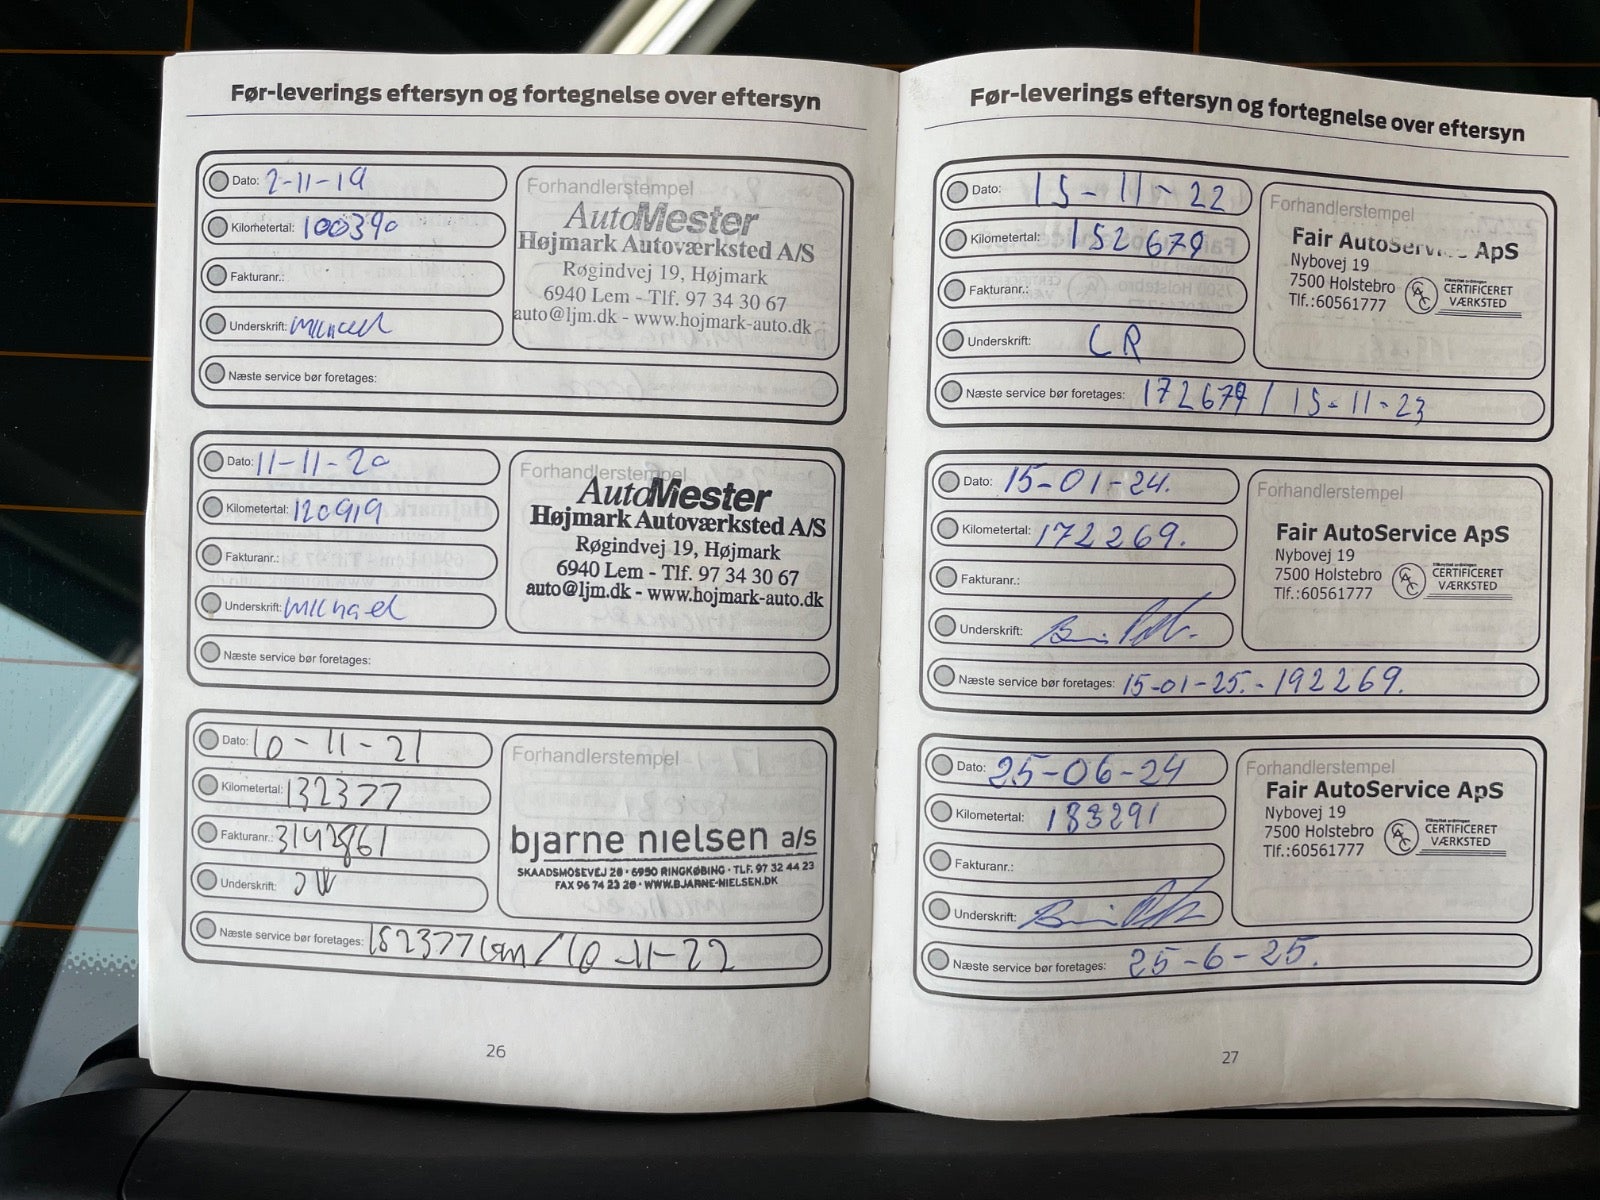 Før-leverings eftersyn og fortegnelse over eftersyn
Dato: 2-11-19
Kilometertal: 100390
Fakturanr.:
Underskrift: Michael
Næste service bør foretages:
Forhandlerstempel
AutoMester
Højmark Autoværksted A/S
Røgindvej 19, Højmark
6940 Lem - Tlf. 97 34 30 67
auto@ljm.dk - www.hojmark-auto.dk
Dato: 11-11-20
Kilometertal: 120919
Fakturanr.:
Underskrift: Michael
Næste service bør foretages:
Forhandlerstempel
AutoMester
Højmark Autoværksted A/S
Røgindvej 19, Højmark
6940 Lem - Tlf. 97 34 30 67
auto@ljm.dk - www.hojmark-auto.dk
Dato: 10-11-21
Kilometertal: 132377
Fakturanr.:
Underskrift:
Næste service bør foretages: 152377km / 10-11-22
Forhandlerstempel
bjarne nielsen a/s
SKAADSMOSEVEJ 20 · 6950 RINGKØBING · TLF. 97 32 44 23
FAX 96 74 23 20 · WWW.BJARNE-NIELSEN.DK
26
Før-leverings eftersyn og fortegnelse over eftersyn
Dato: 15-11-22
Kilometertal: 152679
Fakturanr.:
Underskrift: CR
Næste service bør foretages: 172679 / 15-11-23
Forhandlerstempel
Fair AutoServ... ApS
Nybovej 19
7500 Holstebro
Tlf.:60561777
CERTIFICERET
VÆRKSTED
Dato: 15-01-24.
Kilometertal: 172269.
Fakturanr.:
Underskrift:
Næste service bør foretages: 15-01-25.-192269.
Forhandlerstempel
Fair AutoService ApS
Nybovej 19
7500 Holstebro
Tlf.:60561777
CERTIFICERET
VÆRKSTED
Dato: 25-06-24
Kilometertal: 183291
Fakturanr.:
Underskrift:
Næste service bør foretages: 25-6-25.
Forhandlerstempel
Fair AutoService ApS
Nybovej 19
7500 Holstebro
Tlf.:60561777
CERTIFICERET
VÆRKSTED
27